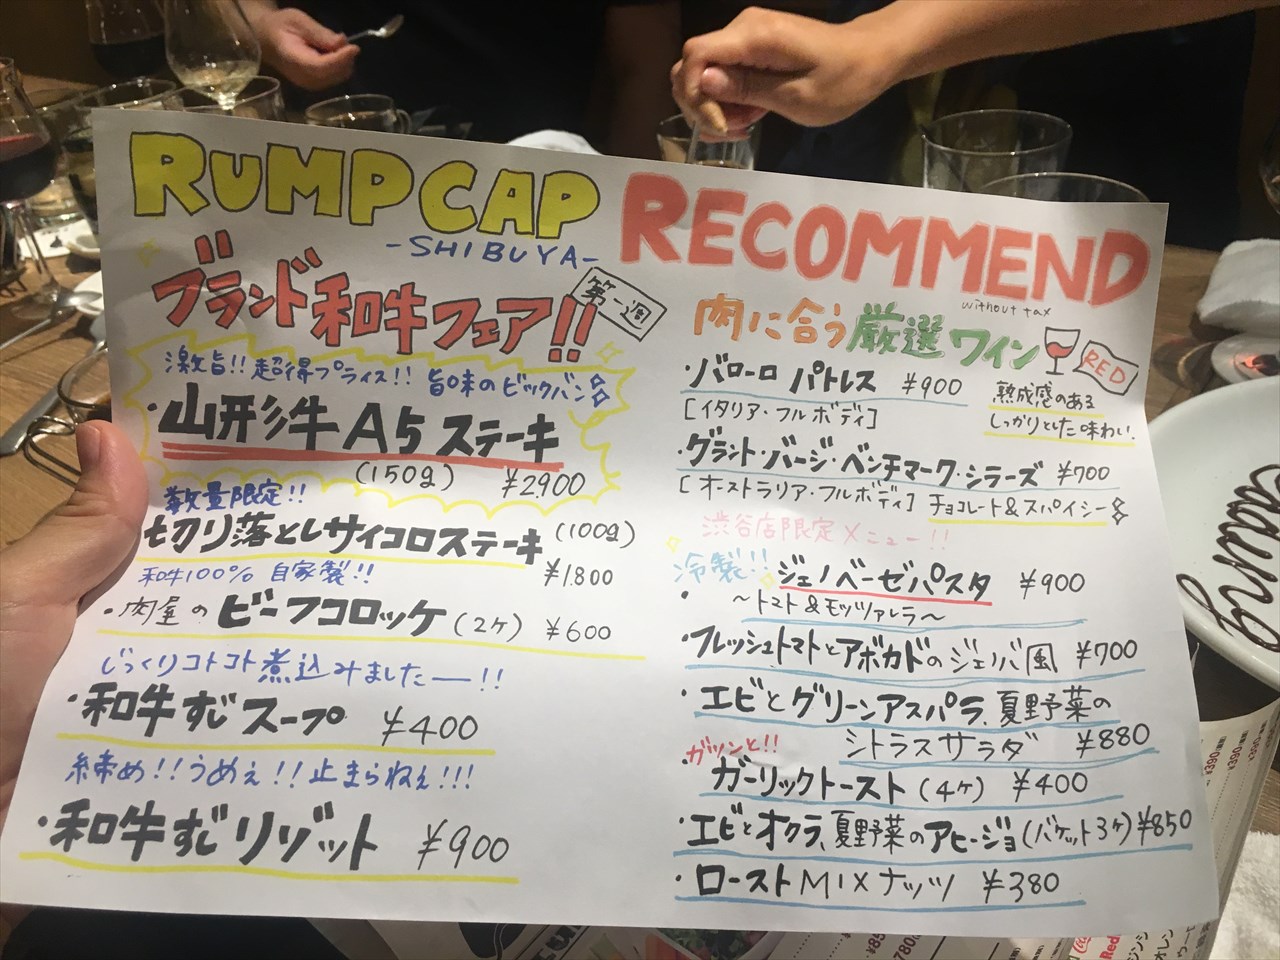 RUMPCAP
-SHIBUYA-
ブランド和牛フェア!!
第一週
激旨!!超得プライス!! 旨味のビックバン
・山形牛A5ステーキ
(150g) ¥2900
数量限定!!
切り落としサイコロステーキ(100g)
¥1.800
和牛100% 自家製!!
・肉屋のビーフコロッケ(2ケ) ¥600
じっくりコトコト煮込みましたー!!
・和牛すじスープ ¥400
締め!!うめぇ!!止まらねぇ!!!
・和牛すじリゾット ¥900
RECOMMEND
without tax
肉に合う厳選ワイン
RED
・バローロ パトレス ¥900
[イタリア・フルボディ]
熟成感のある
しっかりとした味わい.
・グラント・バージ・ベンチマーク・シラーズ ¥700
[オーストラリア・フルボディ] チョコレート&スパイシー
渋谷店限定メニュー!!
冷製!!
・ジェノベーゼパスタ ¥900
〜トマト&モッツァレラ〜
・フレッシュトマトとアボカドのジェノバ風 ¥700
・エビとグリーンアスパラ、夏野菜の
シトラスサラダ ¥880
ガツンと!!
ガーリックトースト(4ケ) ¥400
・エビとオクラ、夏野菜のアヒージョ(バケット3ケ)¥850
・ローストMIXナッツ ¥380